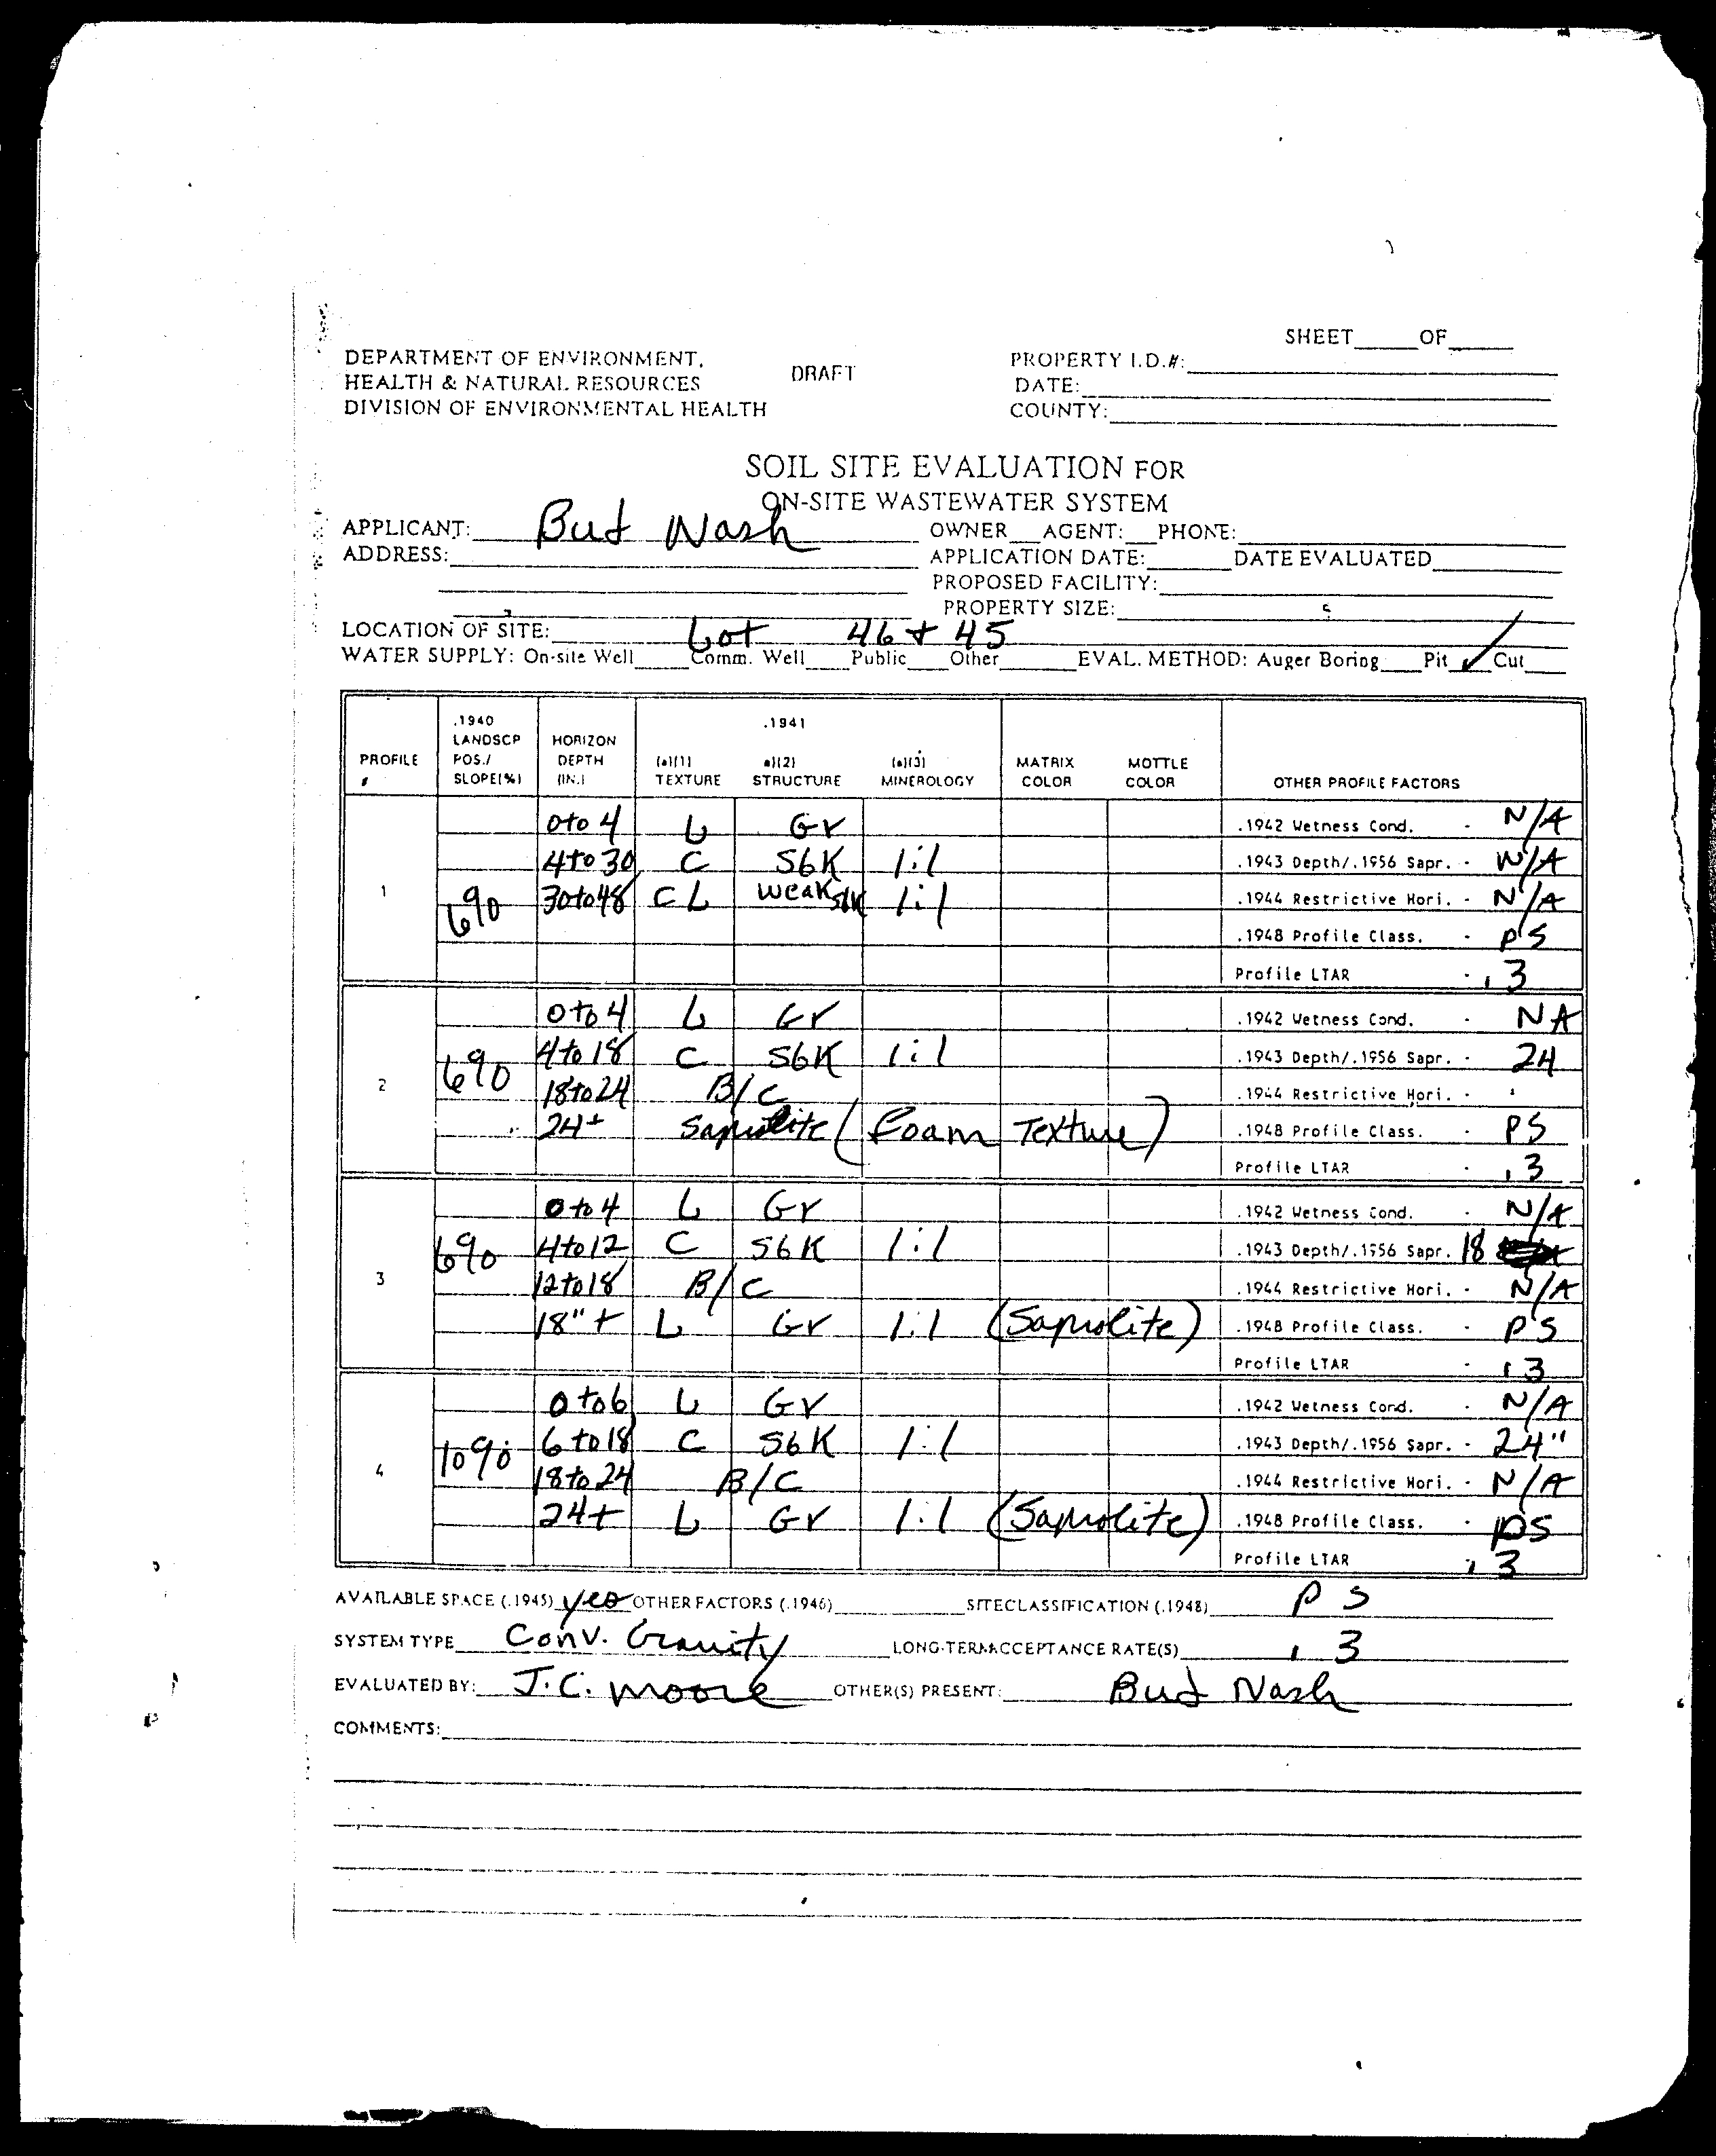 SHEET_____OF_____
DEPARTMENT OF ENVIRONMENT, DRAFT PROPERTY I.D.#:
HEALTH & NATURAL RESOURCES DATE:
DIVISION OF ENVIRONMENTAL HEALTH COUNTY:
SOIL SITE EVALUATION FOR
ON-SITE WASTEWATER SYSTEM
APPLICANT: Bud Nash OWNER__AGENT:__PHONE:
ADDRESS: APPLICATION DATE:______DATE EVALUATED
PROPOSED FACILITY:
PROPERTY SIZE:
LOCATION OF SITE: Lot 46 + 45
WATER SUPPLY: On-site Well____Comm. Well___Public___Other_____EVAL. METHOD: Auger Boring___Pit ✓ Cut___
.1940 .1941
LANDSCP HORIZON
PROFILE POS./ DEPTH (a)(1) a)(2) (a)(3) MATRIX MOTTLE
# SLOPE(%) (IN.) TEXTURE STRUCTURE MINEROLOGY COLOR COLOR OTHER PROFILE FACTORS
0 to 4 L Gr .1942 Wetness Cond. - N/A
4 to 30 C SbK 1:1 .1943 Depth/.1956 Sapr. - N/A
1 6% 30 to 48 CL weak sbk 1:1 .1944 Restrictive Hori. - N/A
.1948 Profile Class. - PS
Profile LTAR - .3
0 to 4 L Gr .1942 Wetness Cond. - NA
6% 4 to 18 C SbK 1:1 .1943 Depth/.1956 Sapr. - 24
2 18 to 24 B/C .1944 Restrictive Hori. -
24+ Saprolite (Loam Texture) .1948 Profile Class. - PS
Profile LTAR - .3
0 to 4 L Gr .1942 Wetness Cond. - N/A
6% 4 to 12 C SbK 1:1 .1943 Depth/.1956 Sapr. 18
3 12 to 18 B/C .1944 Restrictive Hori. - N/A
18" + L Gr 1:1 (Saprolite) .1948 Profile Class. - PS
Profile LTAR - .3
0 to 6 L Gr .1942 Wetness Cond. - N/A
10% 6 to 18 C SbK 1:1 .1943 Depth/.1956 Sapr. - 24"
4 18 to 24 B/C .1944 Restrictive Hori. - N/A
24+ L Gr 1:1 (Saprolite) .1948 Profile Class. - PS
Profile LTAR - .3
AVAILABLE SPACE (.1945) yes OTHER FACTORS (.1946)__________SITECLASSIFICATION (.1948) PS
SYSTEM TYPE Conv. Gravity LONG-TERM ACCEPTANCE RATE(S) .3
EVALUATED BY: J.C. Moore OTHER(S) PRESENT: Bud Nash
COMMENTS: